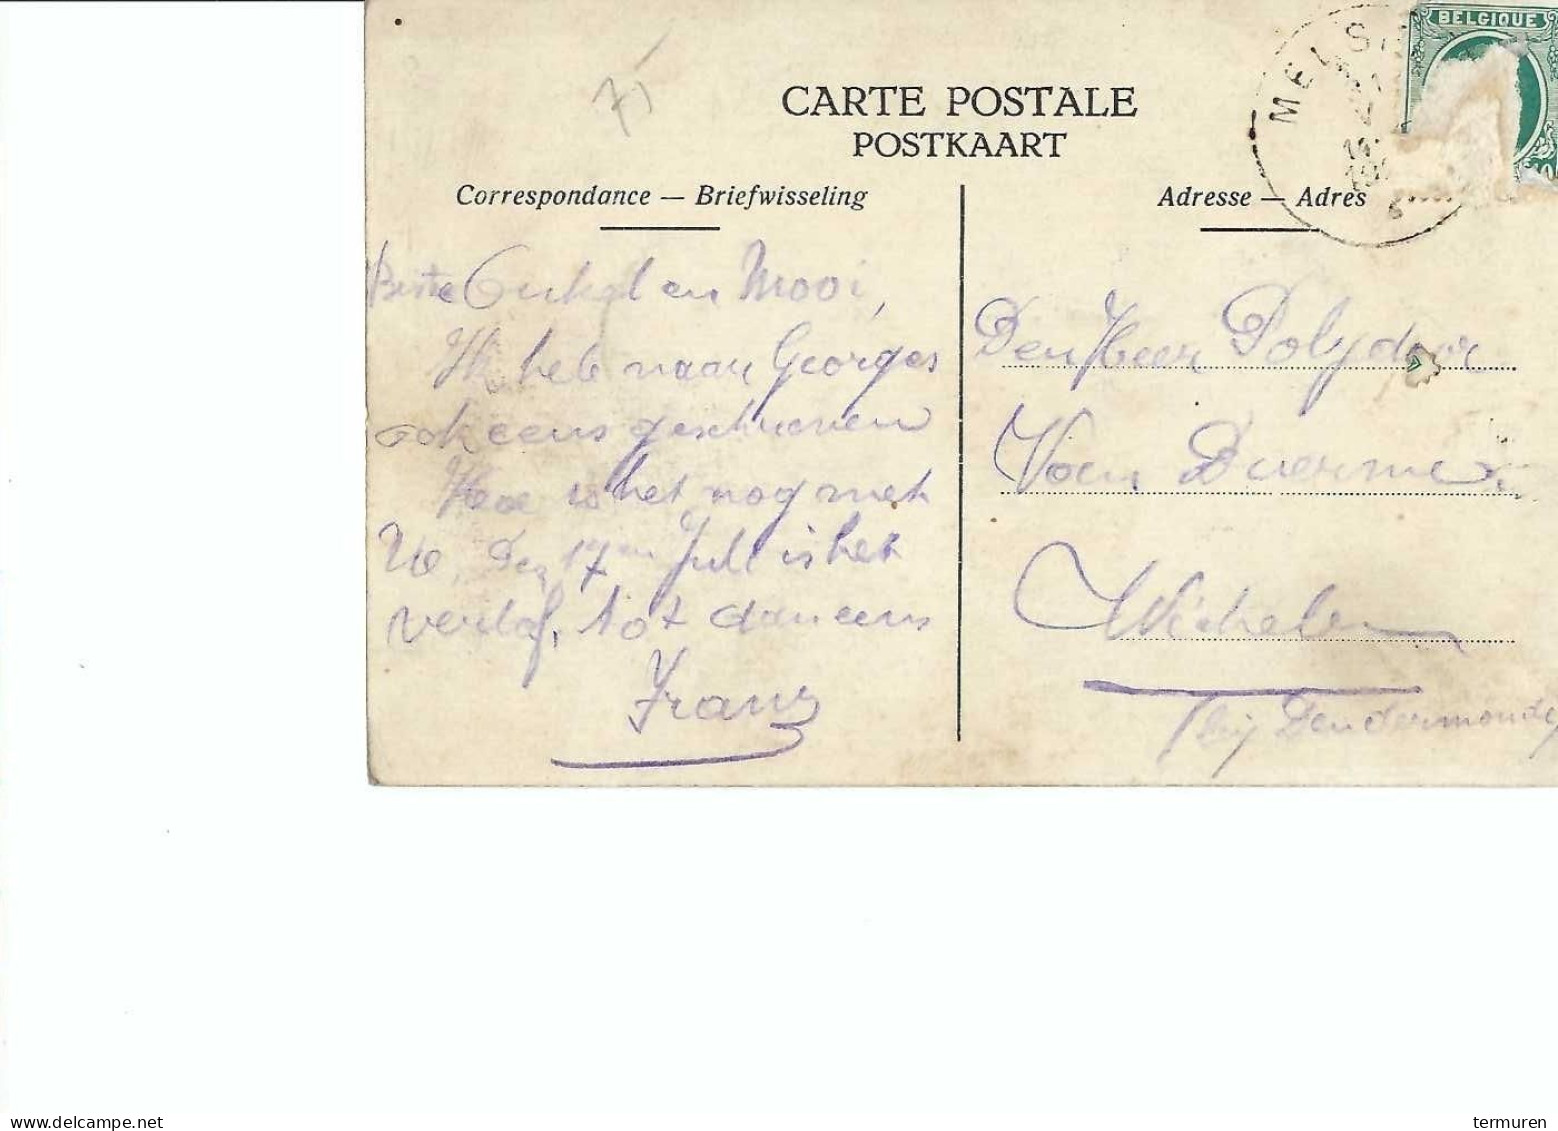 75
CARTE POSTALE
POSTKAART
BELGIQUE
MELS
Correspondance — Briefwisseling
Adresse — Adres
Beste Onkel en Mooi,
Ik heb naar Georges
ook eens geschreven
Hoe is het nog met
U. Den 17en Juli is het
verlof, tot dan eens
Franz
Den Heer Polydoor
Van Duerme
Wichelen
(bij Dendermonde
Delcampe.net
termuren